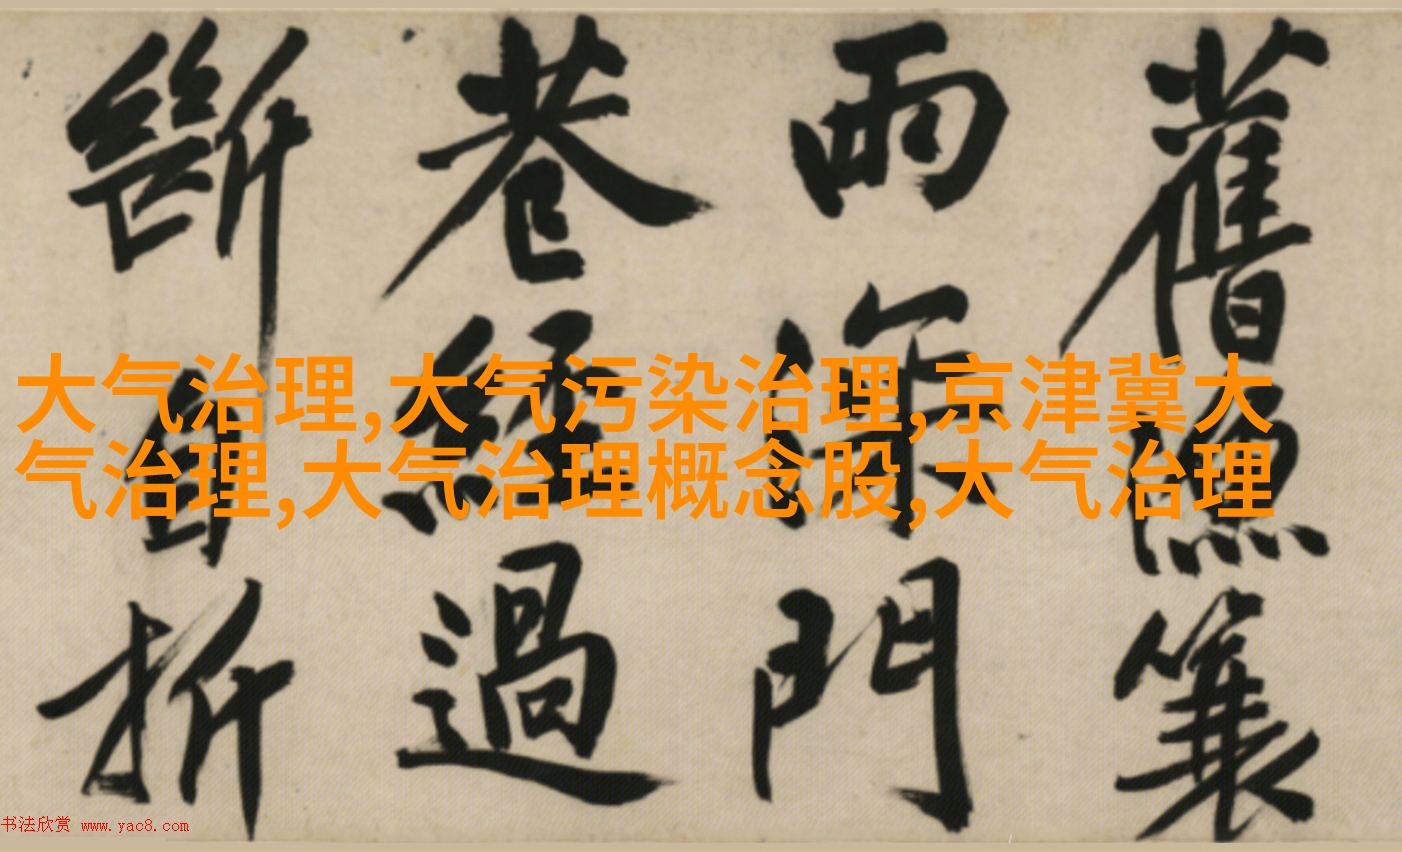 舊簑
雨深門
巷經過
斷自折
大气治理,大气污染治理,京津冀大
气治理,大气治理概念股,大气治理
书法欣赏 www.yac8.com